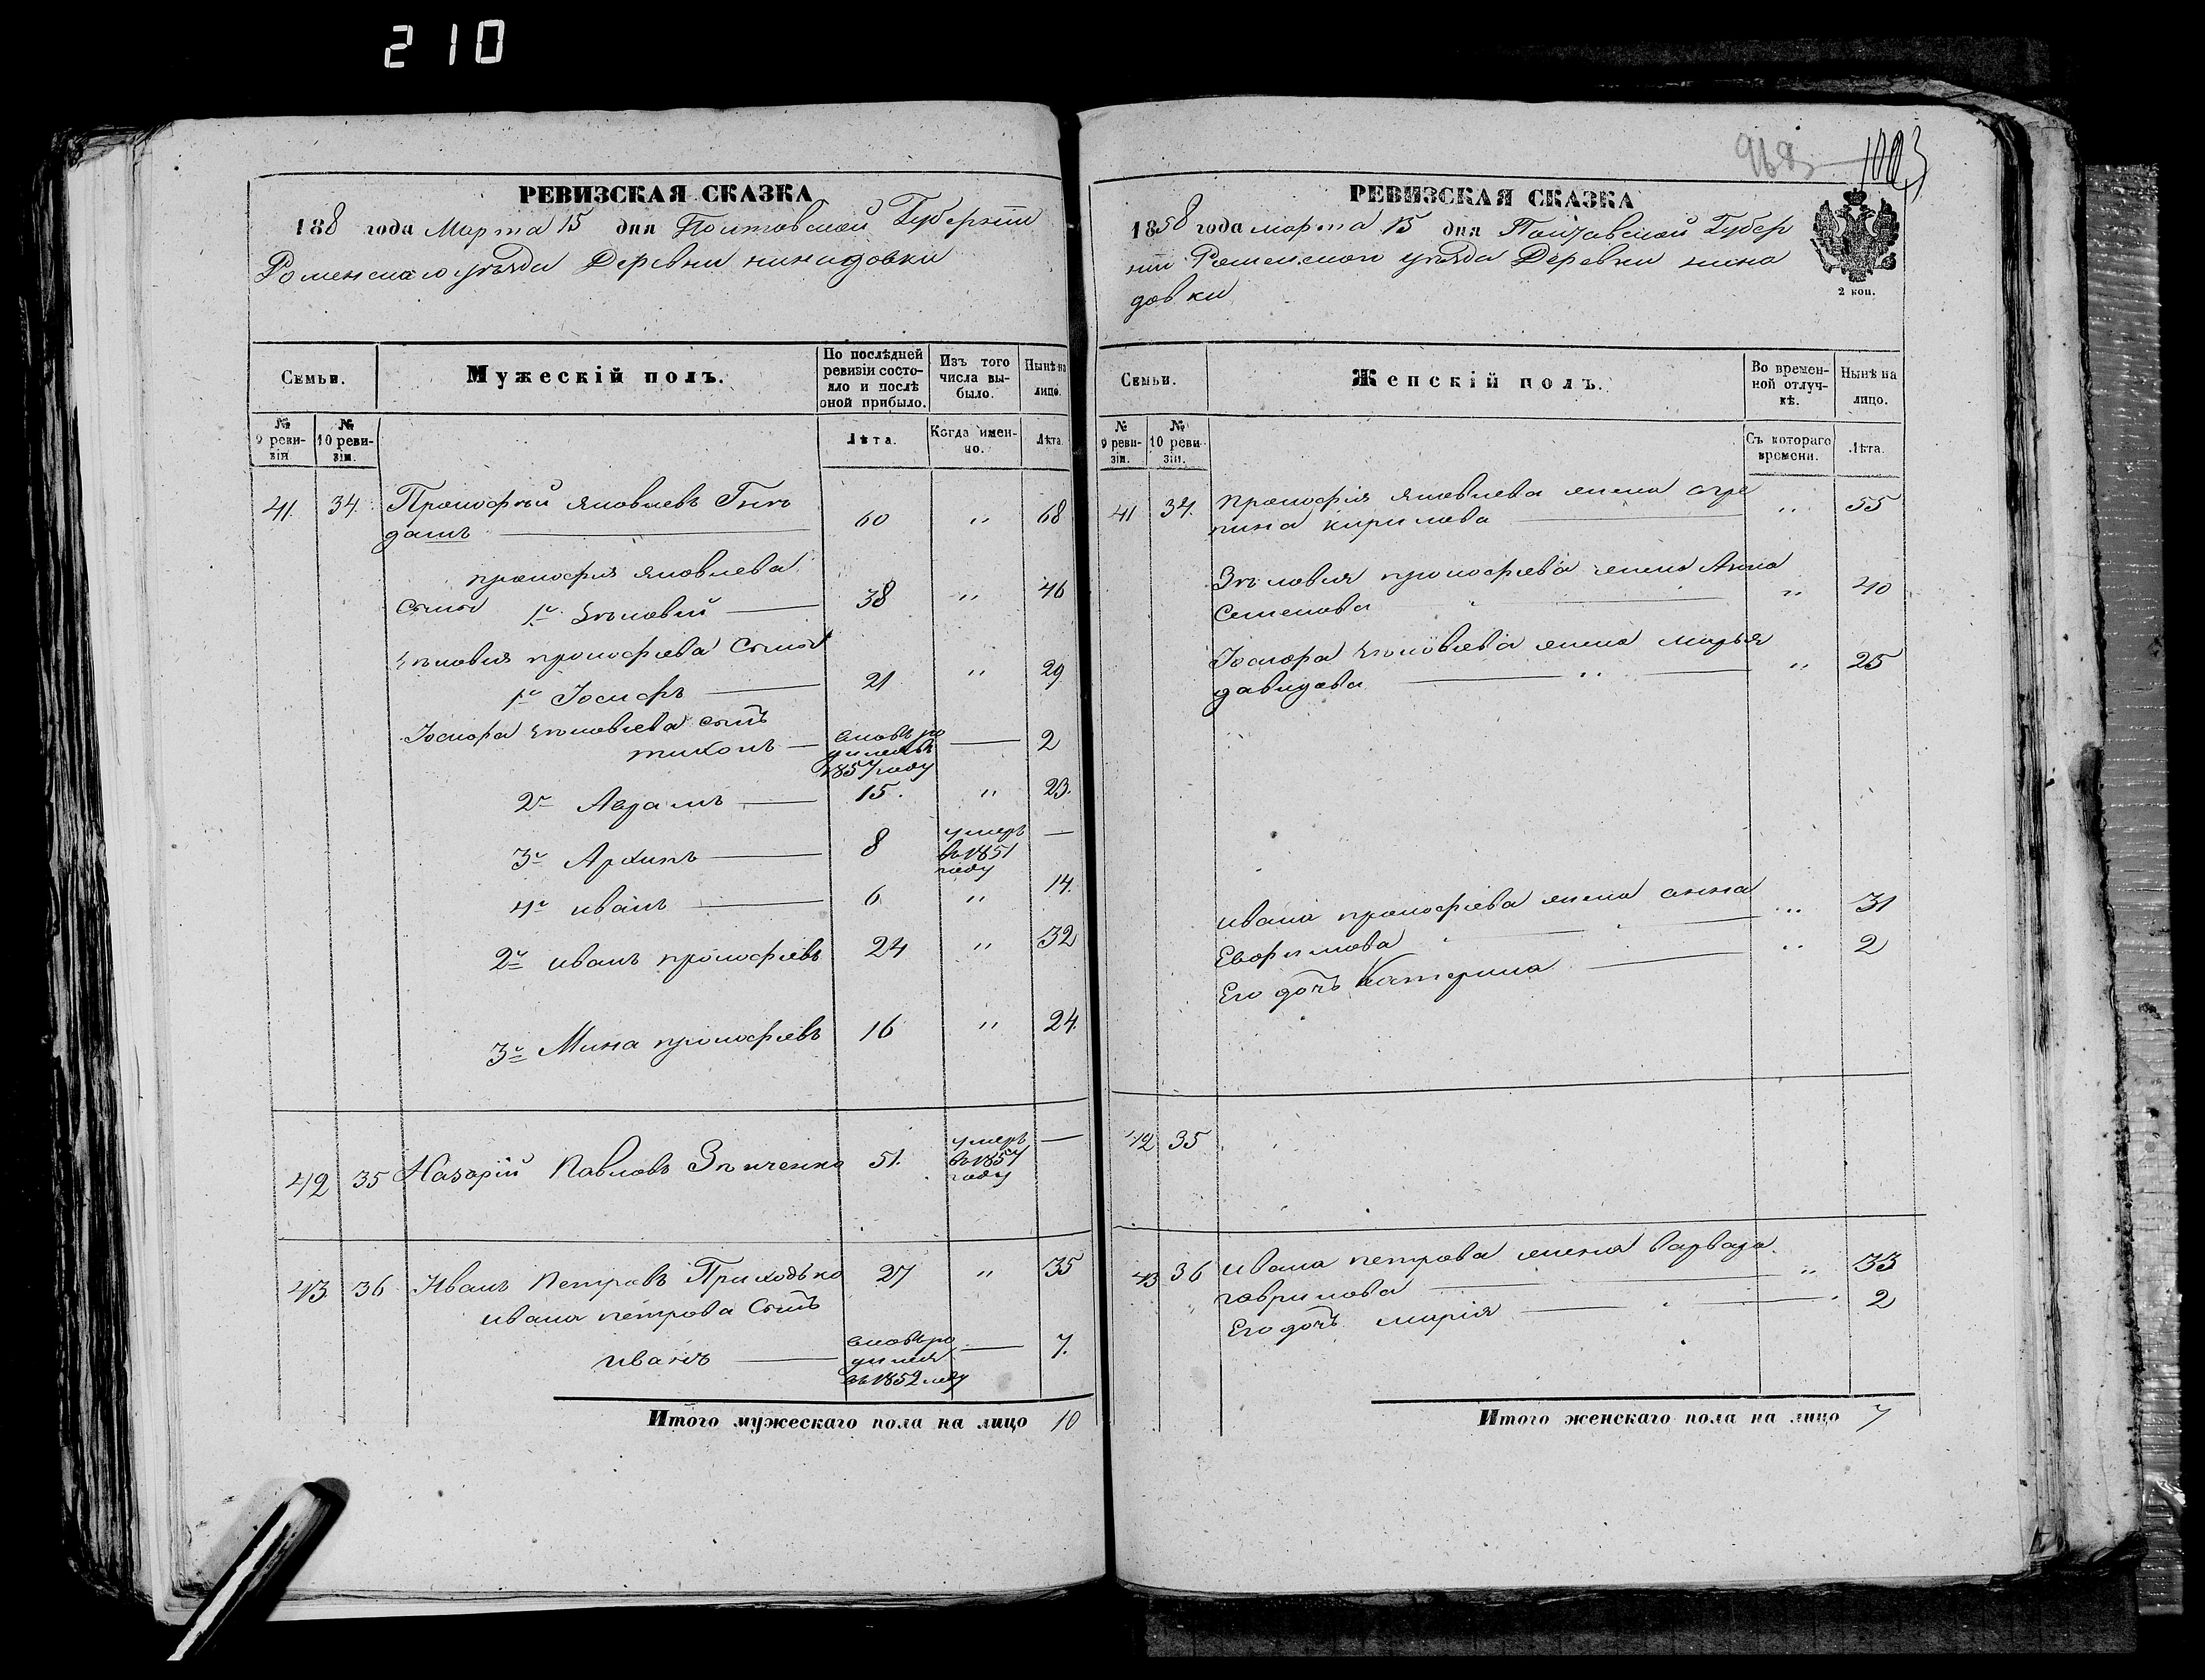 210
РЕВИЗСКАЯ СКАЗКА
188 года Марта 15 дня Полтавской Губернии
Роменскаго уѣзда Деревни
Семьи.
Мужескій полъ.
По послѣдней ревизіи состояло и послѣ оной прибыло.
Изъ того числа выбыло.
Нынѣ на лицо.
№ 9 ревизіи
№ 10 ревизіи.
Лѣта.
Когда именно.
Лѣта
41. 34. Прокофій Яковлевъ
60 " 68
прокофія яковлева
сыны 1й Зѣновій 38 " 46
Зѣновія прокофіева Сыны
1й Іосифъ 21 " 29
Іосифа Зѣновіева сынъ
тихонъ
вновь родился въ 1857 году
2
2й Аврамъ 15. " 23.
3й Архипъ 8
умеръ
въ 1851
году
—
4й иванъ 6 " 14.
2й иванъ прокофіевъ 24 " 32
3й Мина прокофіевъ 16 " 24.
42 35 Назарій Павловъ 51.
умеръ
въ 1857
году
—
43 36 Иванъ Петровъ Приходько 27 " 35
ивана петрова Сынъ
иванъ
вновь ро
дился
въ 1852 году
7.
Итого мужескаго пола на лицо 10
1003
РЕВИЗСКАЯ СКАЗКА
1858 года марта 15 дня Полтавской Губер
ніи Роменскаго уѣзда Деревни
довки
2 коп.
Семьи.
Женскій полъ.
Во временной отлучкѣ.
Нынѣ на лицо.
№ 9 ревизіи.
№ 10 ревизіи.
Съ котораго времени.
Лѣта.
41 34. прокофія яковлева жена агре
пина кирилова " 55
Зѣновія прокофіева жена Анна
Семенова " 40
Іосифа Зѣновіева жена марья
давидова " 25
ивана прокофіева жена анна
Евфимова " 31
Его дочь Катерина " 2
42 35
43 36 ивана петрова жена варвара
гаврилова " 33
Его дочь марія 2
Итого женскаго пола на лицо 7